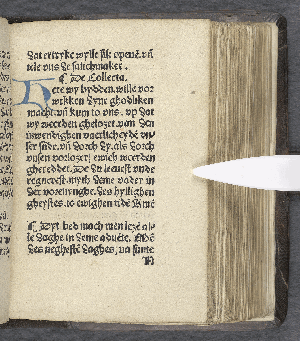 dat ertryke wylle sik opene vn̄
tele vns de salichmaker.
¶ De Collecta.
Here wy bydden. wille vor
wekken dyne ghodliken
macht. vn̄ kum to vns. vp dat
wy werden ghelozet. van den
inwendighen vaerlicheyde vn̄
ser sunde. vn̄ dorch dy. als dorch
vnsen vorlozer, ewich werden
ghereddet. De du leuest unde
regnerest. myth deme vader in
der voreninghe. des hyllighen
gheystes. to ewighen tidē. Amē
¶ Dyt bed mach men lezē al-
le daghe in deme aduēte. Men
des neghestē daghes, na sunte